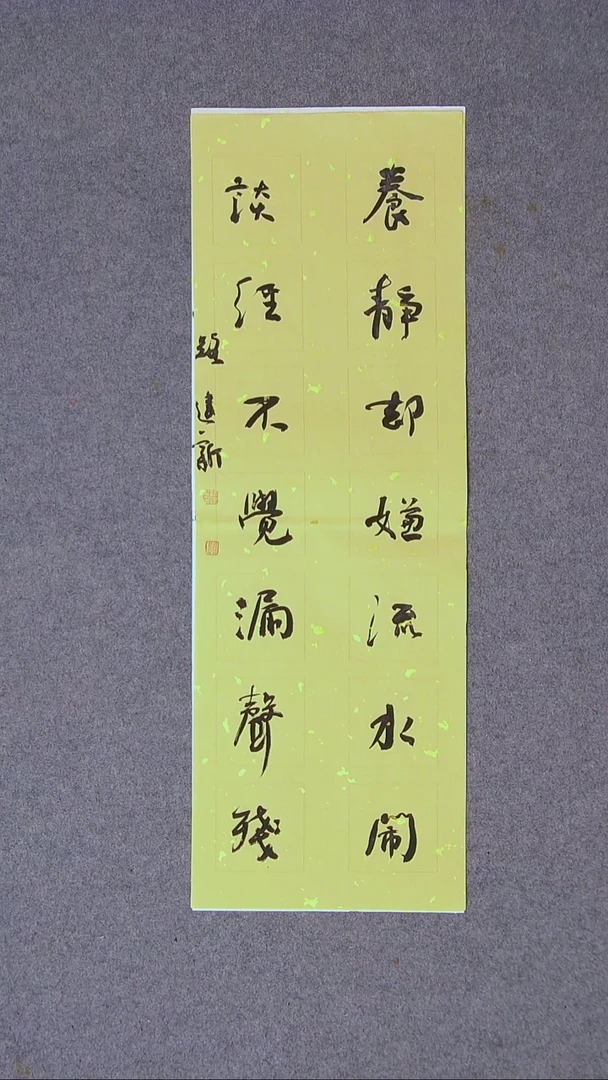 養靜却嫌流水鬧
談經不覺漏聲殘
建新